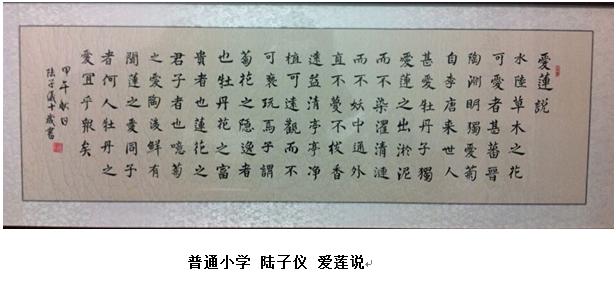 愛蓮説
水陸草木之花
可愛者甚蕃晉
陶淵明獨愛菊
自李唐来世人
甚愛牡丹予獨
愛蓮之出淤泥
而不染濯清漣
而不妖中通外
直不蔓不枝香
遠益清亭亭净
植可遠觀而不
可褻玩焉予謂
菊花之隱逸者
也牡丹花之富
貴者也蓮花之
君子者也噫菊
之愛陶後鮮有
聞蓮之愛同予
者何人牡丹之
愛宜乎衆矣
甲午秋日
陸子儀十歲書
普通小学 陆子仪 爱莲说